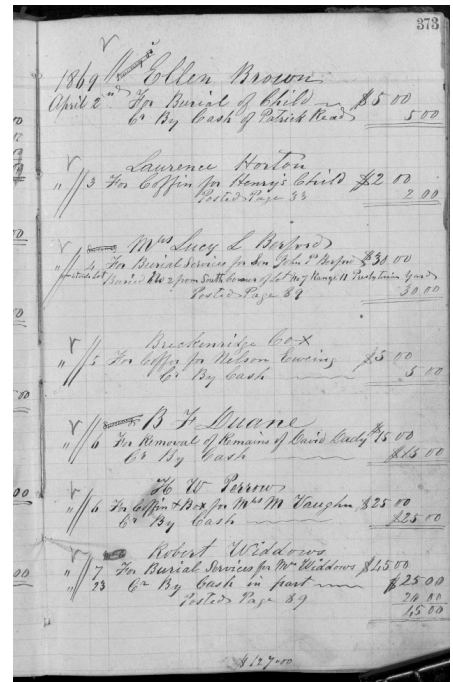 373
1869 Ellen Brown
April 2nd For Burial of Child $5 00
Cr By Cash of Patrick Read 5 00
Laurence Horton
" 3 For Coffin for Henry's Child $2 00
Posted Page 33 2 00
Mrs Lucy L Berford
" 4 For Burial Services for Son John Berford $30.00
Buried No 2 from South corner of Lot No 7 Range 11 Presbyterian yard
Posted Page 89 30.00
Breckenridge Cox
" 5 For Coffin for Nelson Ewing $5 00
Cr By Cash 5 00
B F Duane
" 6 For Removal of Remains of David Dady $15 00
Cr By Cash $15 00
H W Perrow
" 6 For Coffin & Box for Mrs M Vaughn $25 00
Cr By Cash $25 00
Robert Widdows
" 7 For Burial Services for Mr Widdows $45 00
" 23 Cr By Cash in part $25 00
Posted Page 89 20 00
45 00
$127.00